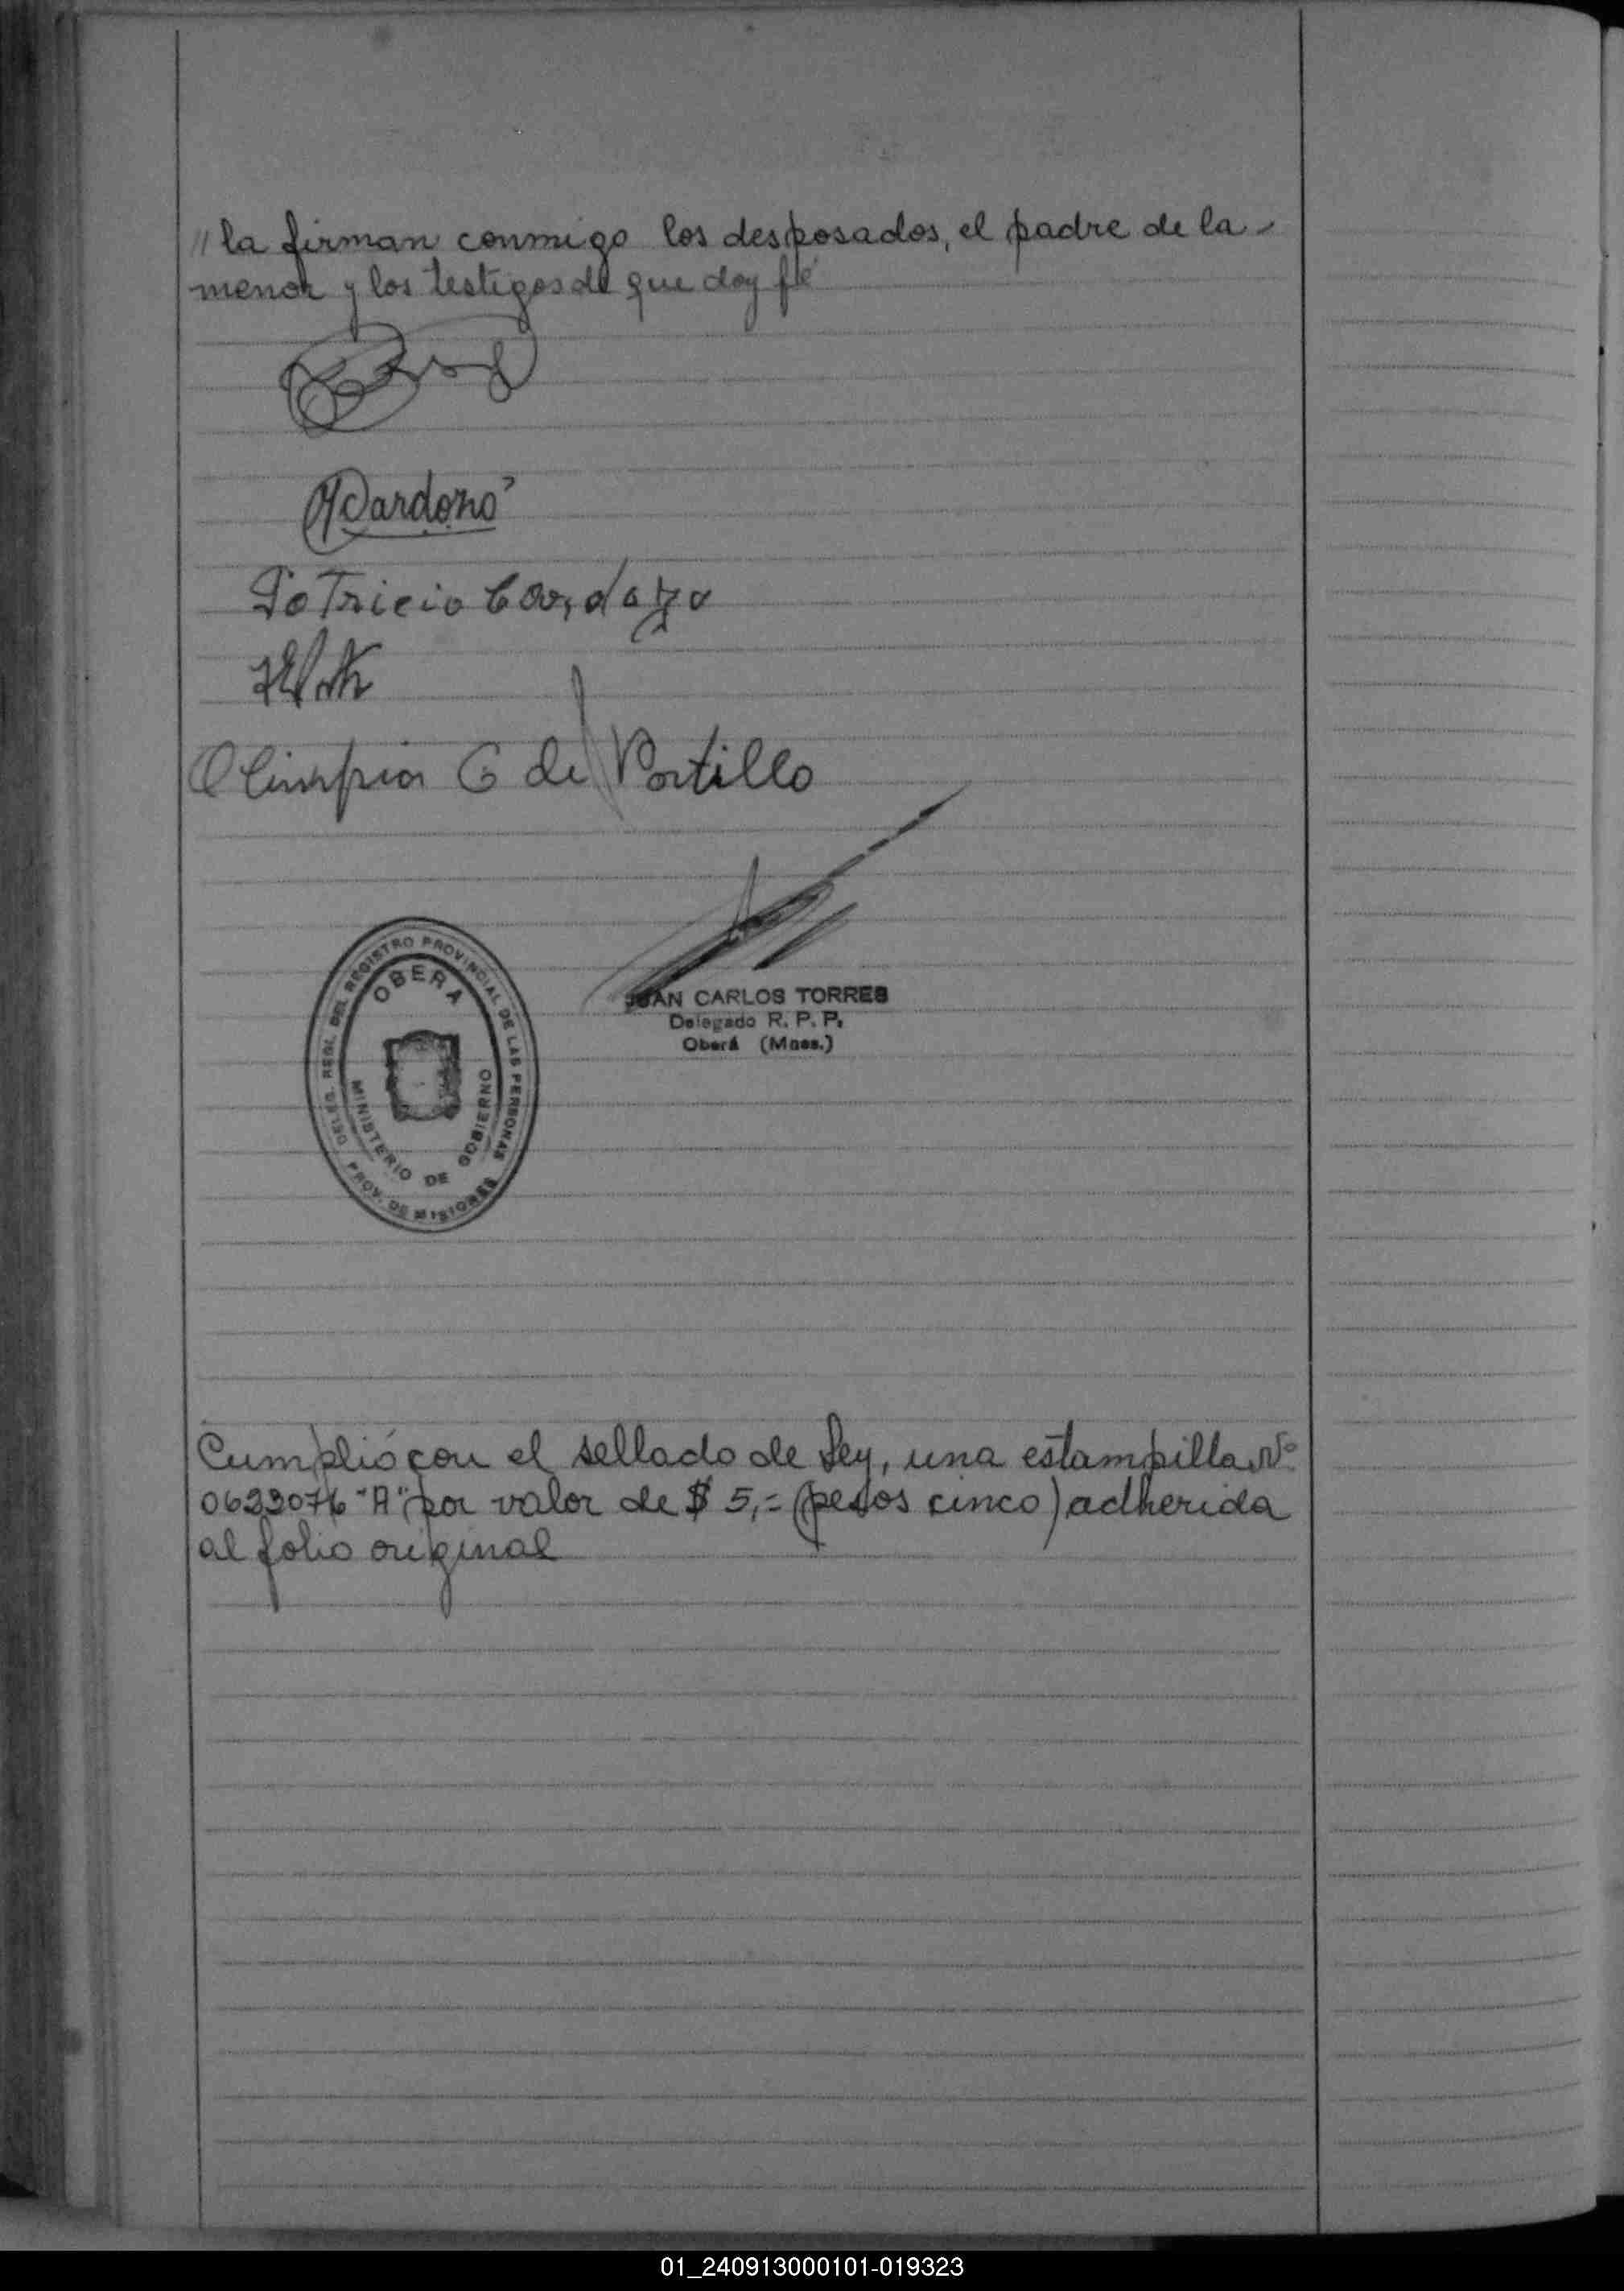 // la firman conmigo los desposados, el padre de la -
menor y los testigos de que doy fé
Patricio Cardozo
Olimpia G de Portillo
DELEG. REGL. DEL REGISTRO PROVINCIAL DE LAS PERSONAS
OBERA
MINISTERIO DE GOBIERNO
PROV. DE MISIONES
JUAN CARLOS TORRES
Delegado R. P. P.
Oberá (Mnes.)
Cumplió con el sellado de Ley, una estampilla Nº
0623076 "A" por valor de $ 5,= (pesos cinco) adherida
al folio original
01_240913000101-019323